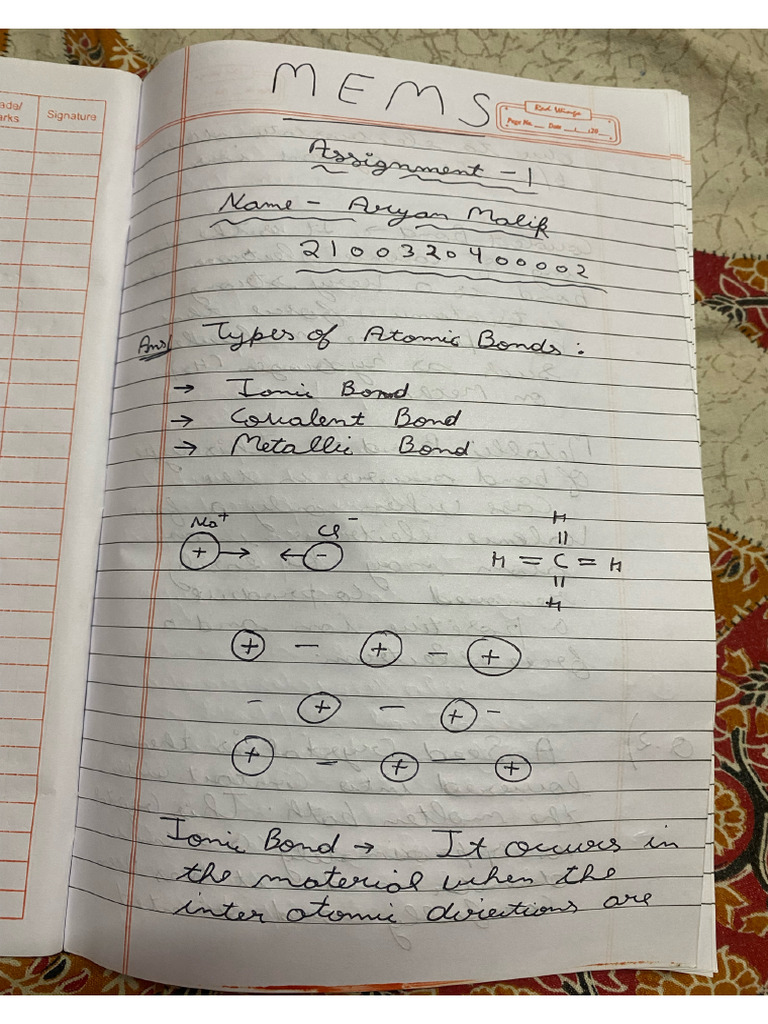 ade/
arks
Signature
MEMS
Red Wings
Page No. Date 20
Assignment - 1
Name - Aryan Malik
2100320400002
Ans) Types of Atomic Bonds :
→ Ionic Bond
→ Covalent Bond
→ Metallic Bond
Na⁺ Cl⁻
+ → ← -
H
||
H = C = H
||
H
+ - + - +
- + - + -
+ - + - +
Ionic Bond → It occurs in
the material when the
inter atomic directions are